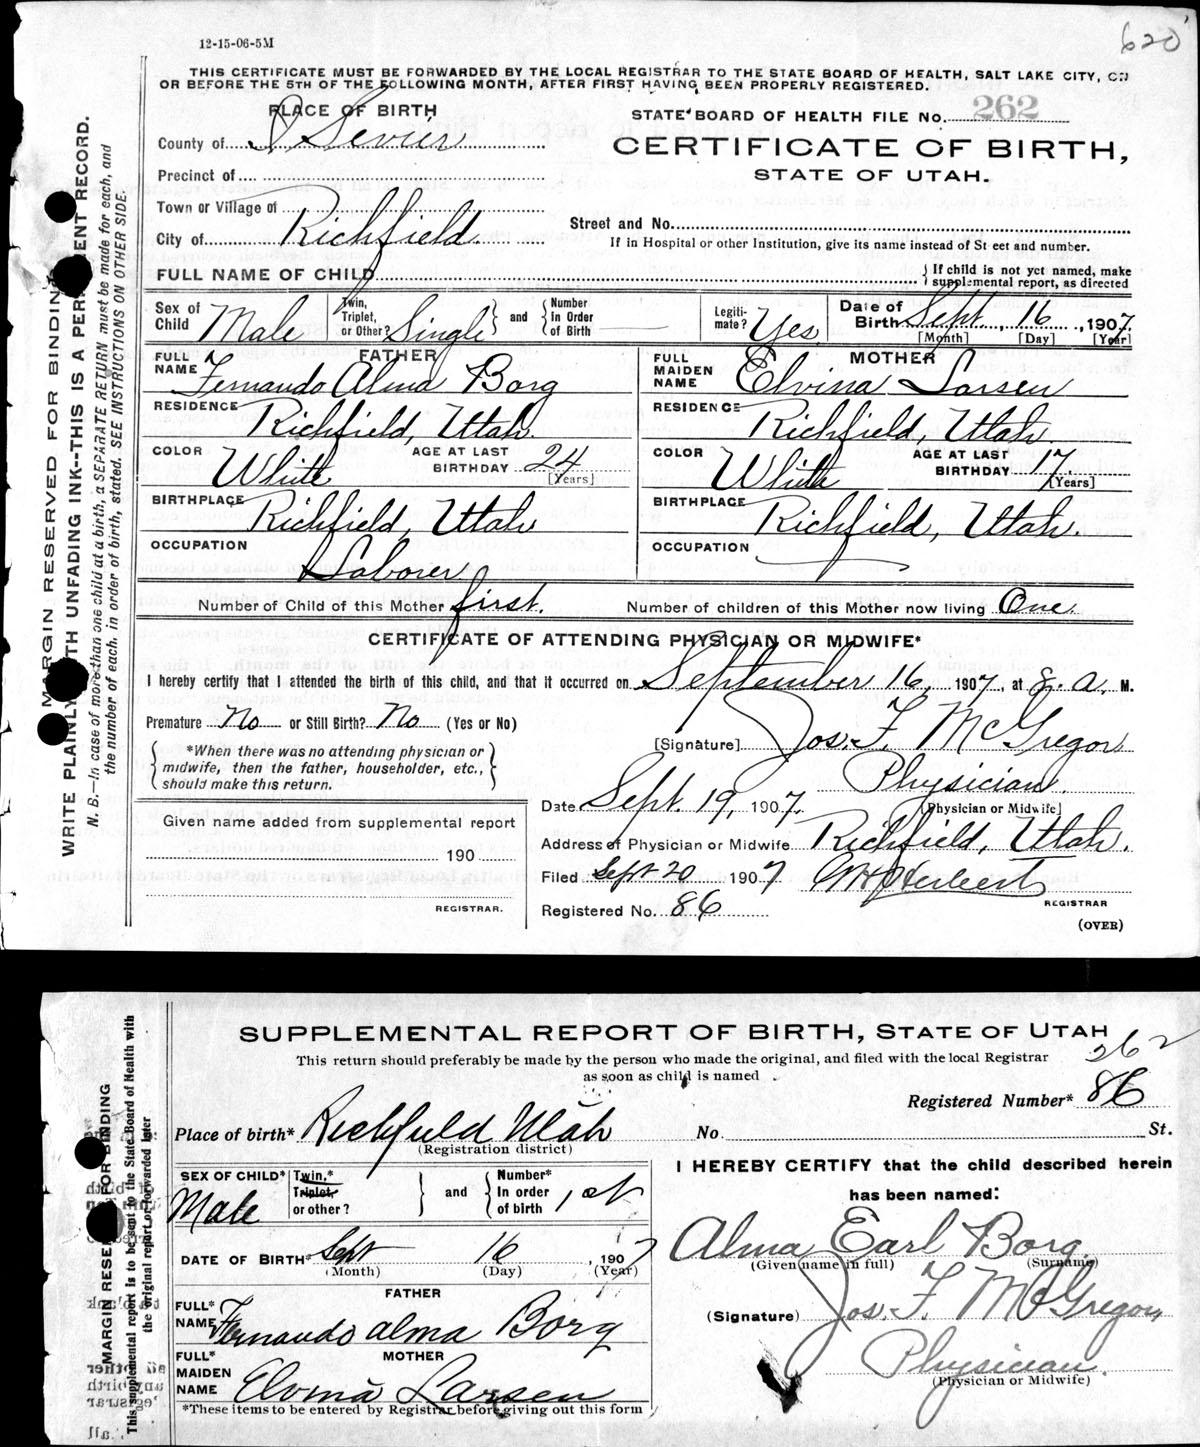 12-15-06-5M
620
THIS CERTIFICATE MUST BE FORWARDED BY THE LOCAL REGISTRAR TO THE STATE BOARD OF HEALTH, SALT LAKE CITY, ON
OR BEFORE THE 5TH OF THE FOLLOWING MONTH, AFTER FIRST HAVING BEEN PROPERLY REGISTERED.
PLACE OF BIRTH
STATE BOARD OF HEALTH FILE No. 262
County of Sevier
CERTIFICATE OF BIRTH,
STATE OF UTAH.
Precinct of
Town or Village of
City of Richfield
Street and No.
If in Hospital or other Institution, give its name instead of St eet and number.
FULL NAME OF CHILD
If child is not yet named, make
supplemental report, as directed
Sex of Child Male
Twin, Triplet, or Other? Single and Number In Order of Birth
Legiti-mate? Yes
Date of Birth Sept. 16, 1907
[Month] [Day] [Year]
FATHER
FULL NAME Fernando Alma Borg
RESIDENCE Richfield, Utah.
COLOR White AGE AT LAST BIRTHDAY 24 [Years]
BIRTHPLACE Richfield, Utah
OCCUPATION Laborer
MOTHER
FULL MAIDEN NAME Elvina Larsen
RESIDENCE Richfield, Utah.
COLOR White AGE AT LAST BIRTHDAY 17. [Years]
BIRTHPLACE Richfield, Utah.
OCCUPATION
Number of Child of this Mother first. Number of children of this Mother now living One
CERTIFICATE OF ATTENDING PHYSICIAN OR MIDWIFE*
I hereby certify that I attended the birth of this child, and that it occurred on September 16, 1907, at 8. a. M.
Premature No or Still Birth? No (Yes or No)
[Signature] Jos. F. McGregor
*When there was no attending physician or
midwife, then the father, householder, etc.,
should make this return.
Physician.
(Physician or Midwife]
Date Sept. 19, 1907.
Given name added from supplemental report
190
REGISTRAR.
Address of Physician or Midwife Richfield, Utah.
Filed Sept 20 1907
Herbert
REGISTRAR
Registered No. 86
(OVER)
MARGIN RESERVED FOR BINDING
WRITE PLAINLY WITH UNFADING INK--THIS IS A PERMANENT RECORD.
N. B.—In case of more than one child at a birth, a SEPARATE RETURN must be made for each, and
the number of each, in order of birth, stated. SEE INSTRUCTIONS ON OTHER SIDE.
SUPPLEMENTAL REPORT OF BIRTH, STATE OF UTAH
This return should preferably be made by the person who made the original, and filed with the local Registrar
as soon as child is named
262
Registered Number* 86
Place of birth* Richfield Utah No. St.
(Registration district)
SEX OF CHILD* Male
Twin,* Triplet, or other? and Number* In order of birth 1st
I HEREBY CERTIFY that the child described herein
has been named:
DATE OF BIRTH* Sept 16, 1907
(Month) (Day) (Year)
Alma Earl Borg.
(Given name in full) (Surname)
FATHER
FULL* NAME Fernando alma Borg
(Signature) Jos. F. McGregor,
Physician.
(Physician or Midwife)
MOTHER
FULL* MAIDEN NAME Elvina Larsen
*These items to be entered by Registrar before giving out this form
MARGIN RESERVED FOR BINDING
This supplemental report is to be sent to the State Board of Health with
the original report or forwarded later